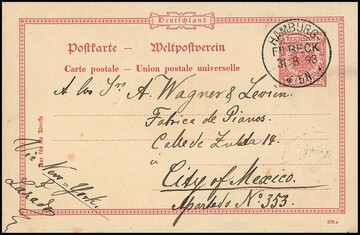 Deutschland
Postkarte – Weltpostverein
Carte postale – Union postale universelle
HAMBURG
EILBECK
31 8 93
A los Srs A. Wagner & Levien.
Fábrica de Pianos.
Calle de Zuleta 14.
á
City of Mexico.
Apartado Nº 353.
Via New-York.
& Laredo